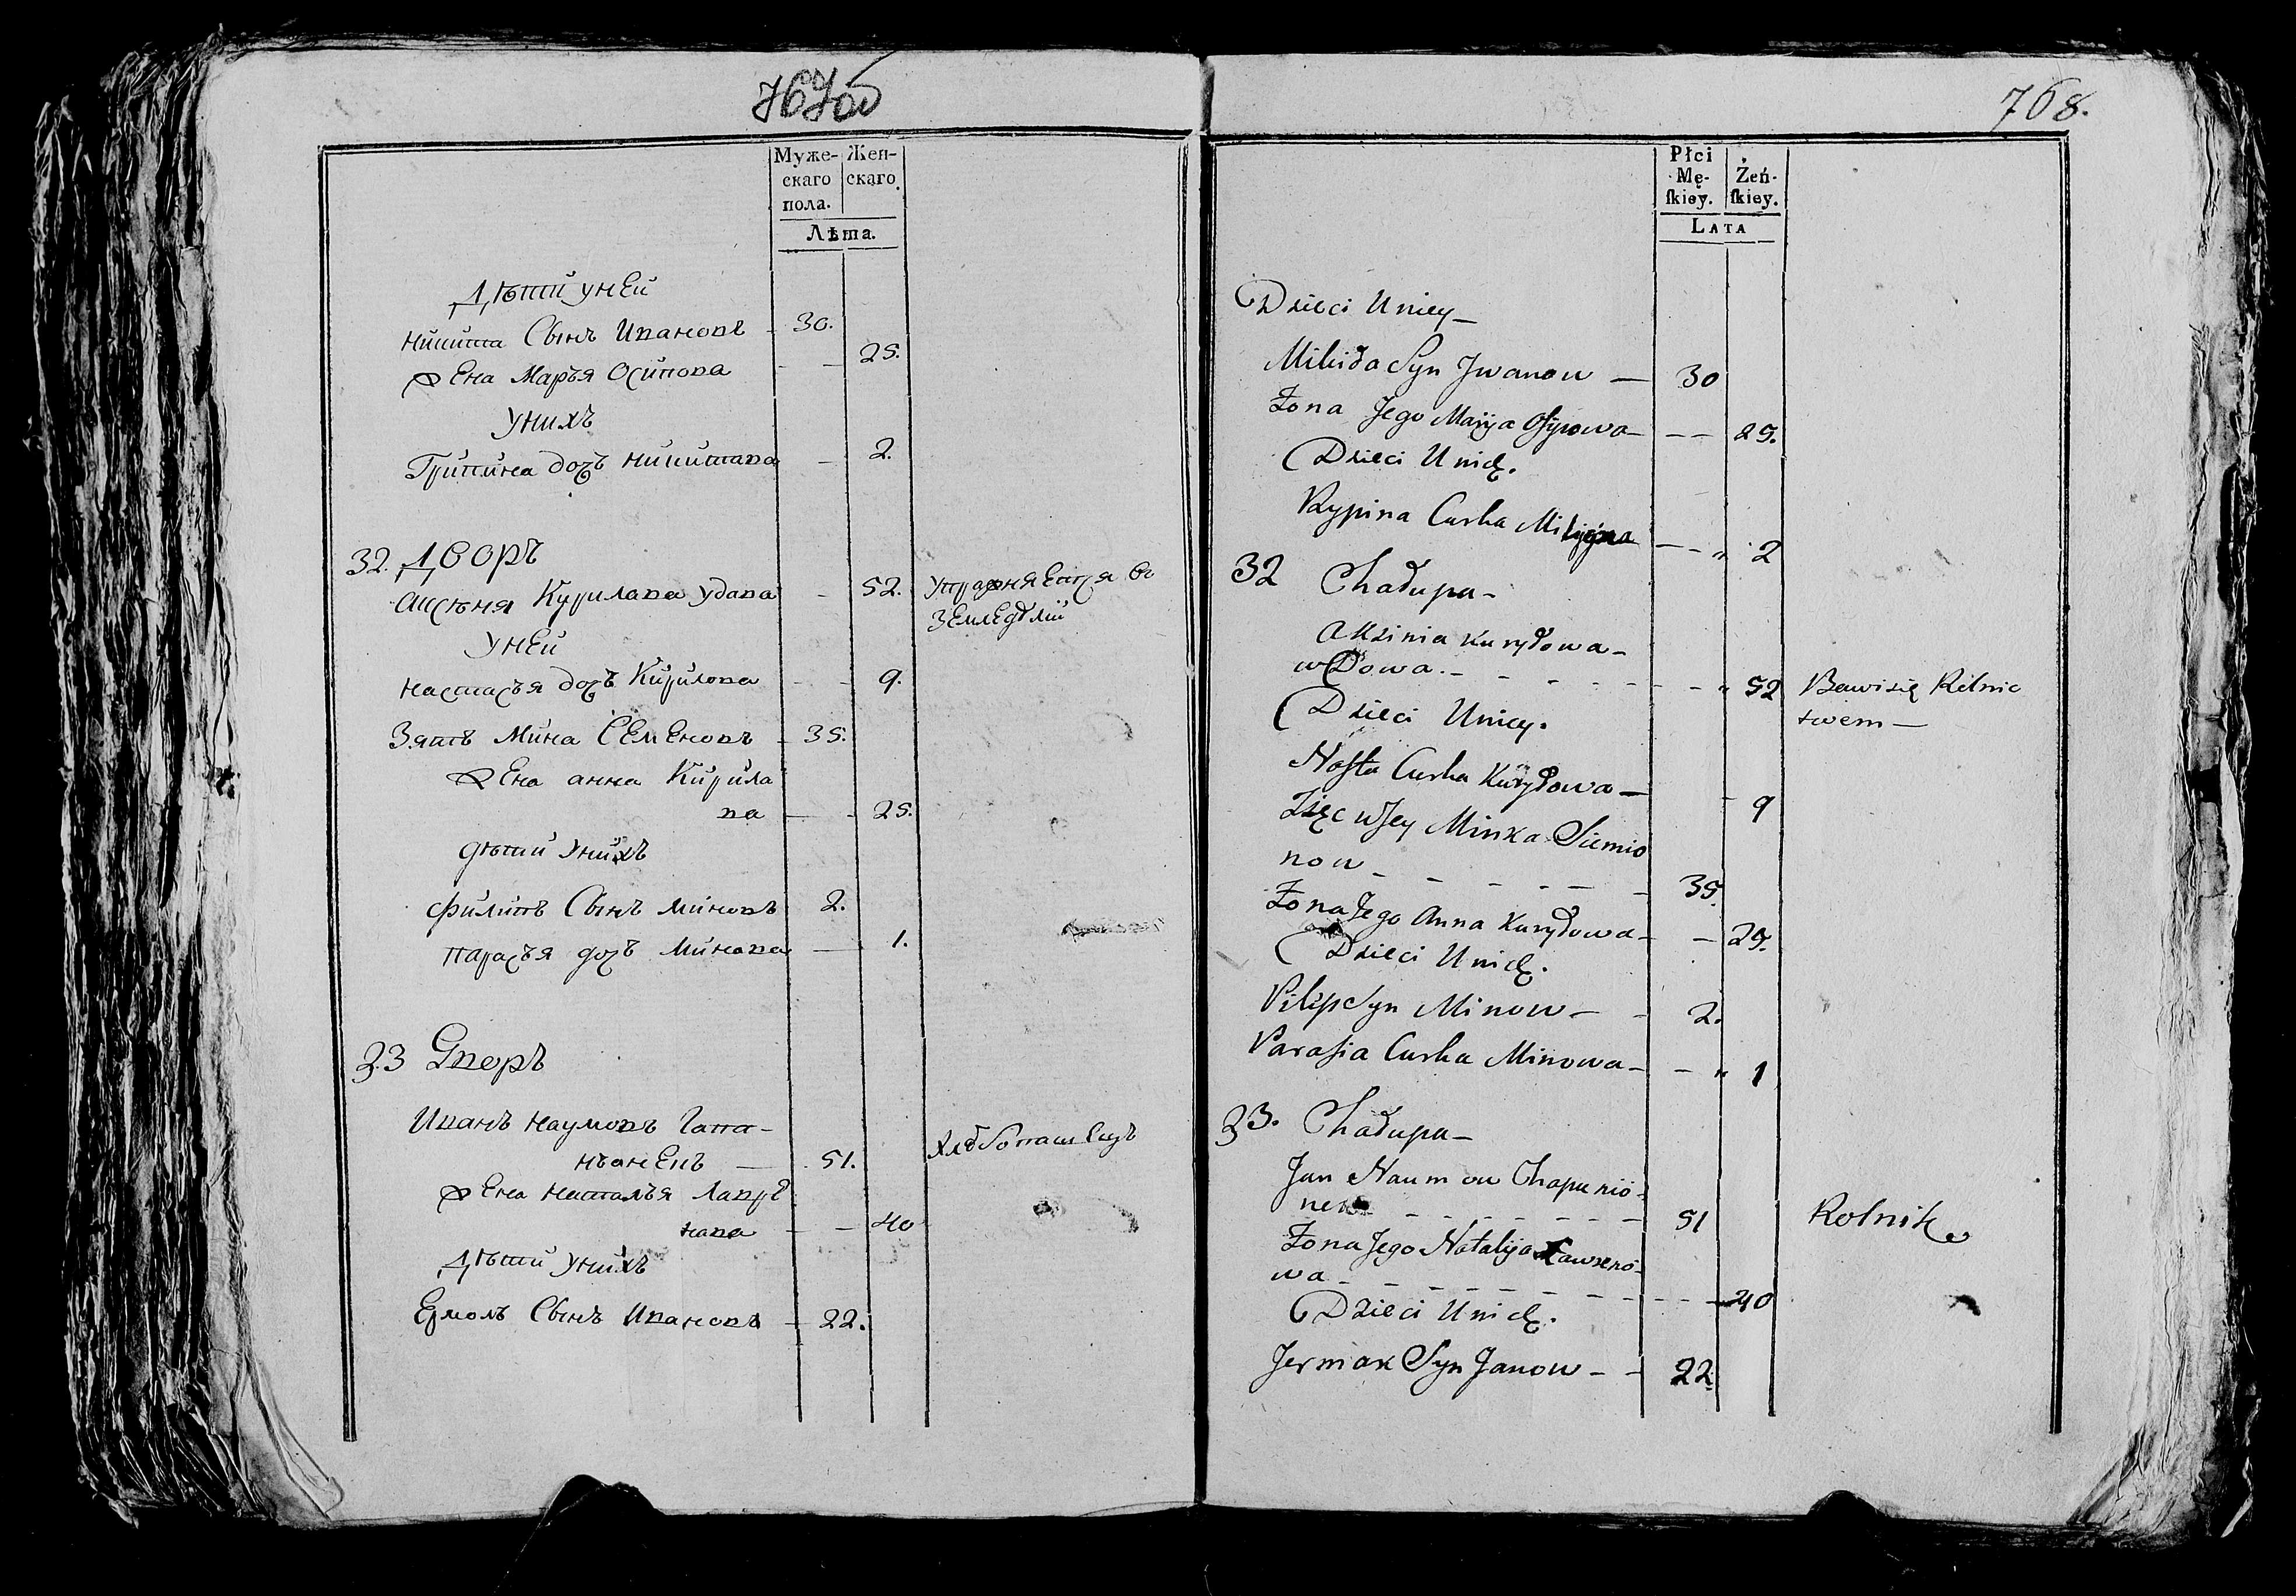 767об
Муже-
скаго
пола.
Жен-
скаго
Лѣта.
Дѣти у ней
Никита Сынъ Ивановъ - 30.
Жена Марья Осипова - - 25.
У нихъ
Грипина дочь Никитава - 2.
32. Дворъ
Аксѣня Курилава удава - 52. Упражняется въ
земледѣлiй
У ней
Настасъя дочь Кирилова - - 9.
Зять Мина Семеновъ - 35.
Жена анна Кирила
ва - - 25.
дѣти у нихъ
Филипъ Сынъ Миновъ 2.
Парасъя дочь Минава - 1.
33 Дворъ
Иванъ Наумовъ
51. Хлѣбопашецъ
Жена Наталья Лаврѣ
нава - - 40
Дѣти у нихъ
Ермолъ Сынъ Ивановъ - 22.
768.
Płci
Mę-
skiey.
Żeń-
skiey.
LATA
Dzieci Uniey -
Mikida Syn Jwanow - 30
Żona Jego Maryja Osypowa - - - 25.
Dzieci Unich.
Kypina Curka - - „ 2
32 Chałupa -
Aksinia Kuryłowa -
wDowa. - - - - - - - - „ 52 Bawi się Rolnic
twem -
Dzieci Uniey.
Nasta Curka Kuryłowa - - 9
Zięc wJey Minka Siemio
now - - - - - - 35.
Żona Jego Anna Kuryłowa - - 25.
Dzieci Unich.
Pilip Syn Minow - - 2.
Parasia Curka Minowa - - „ 1
33. Chałupa -
Jan Naumow Chapunio-
- - - - - - - 51 Rolnik
Żona Jego Natalija Ławreno-
wa - - - - - - - - - - 40
Dzieci Unich.
Jermak Syn Janow - - 22.